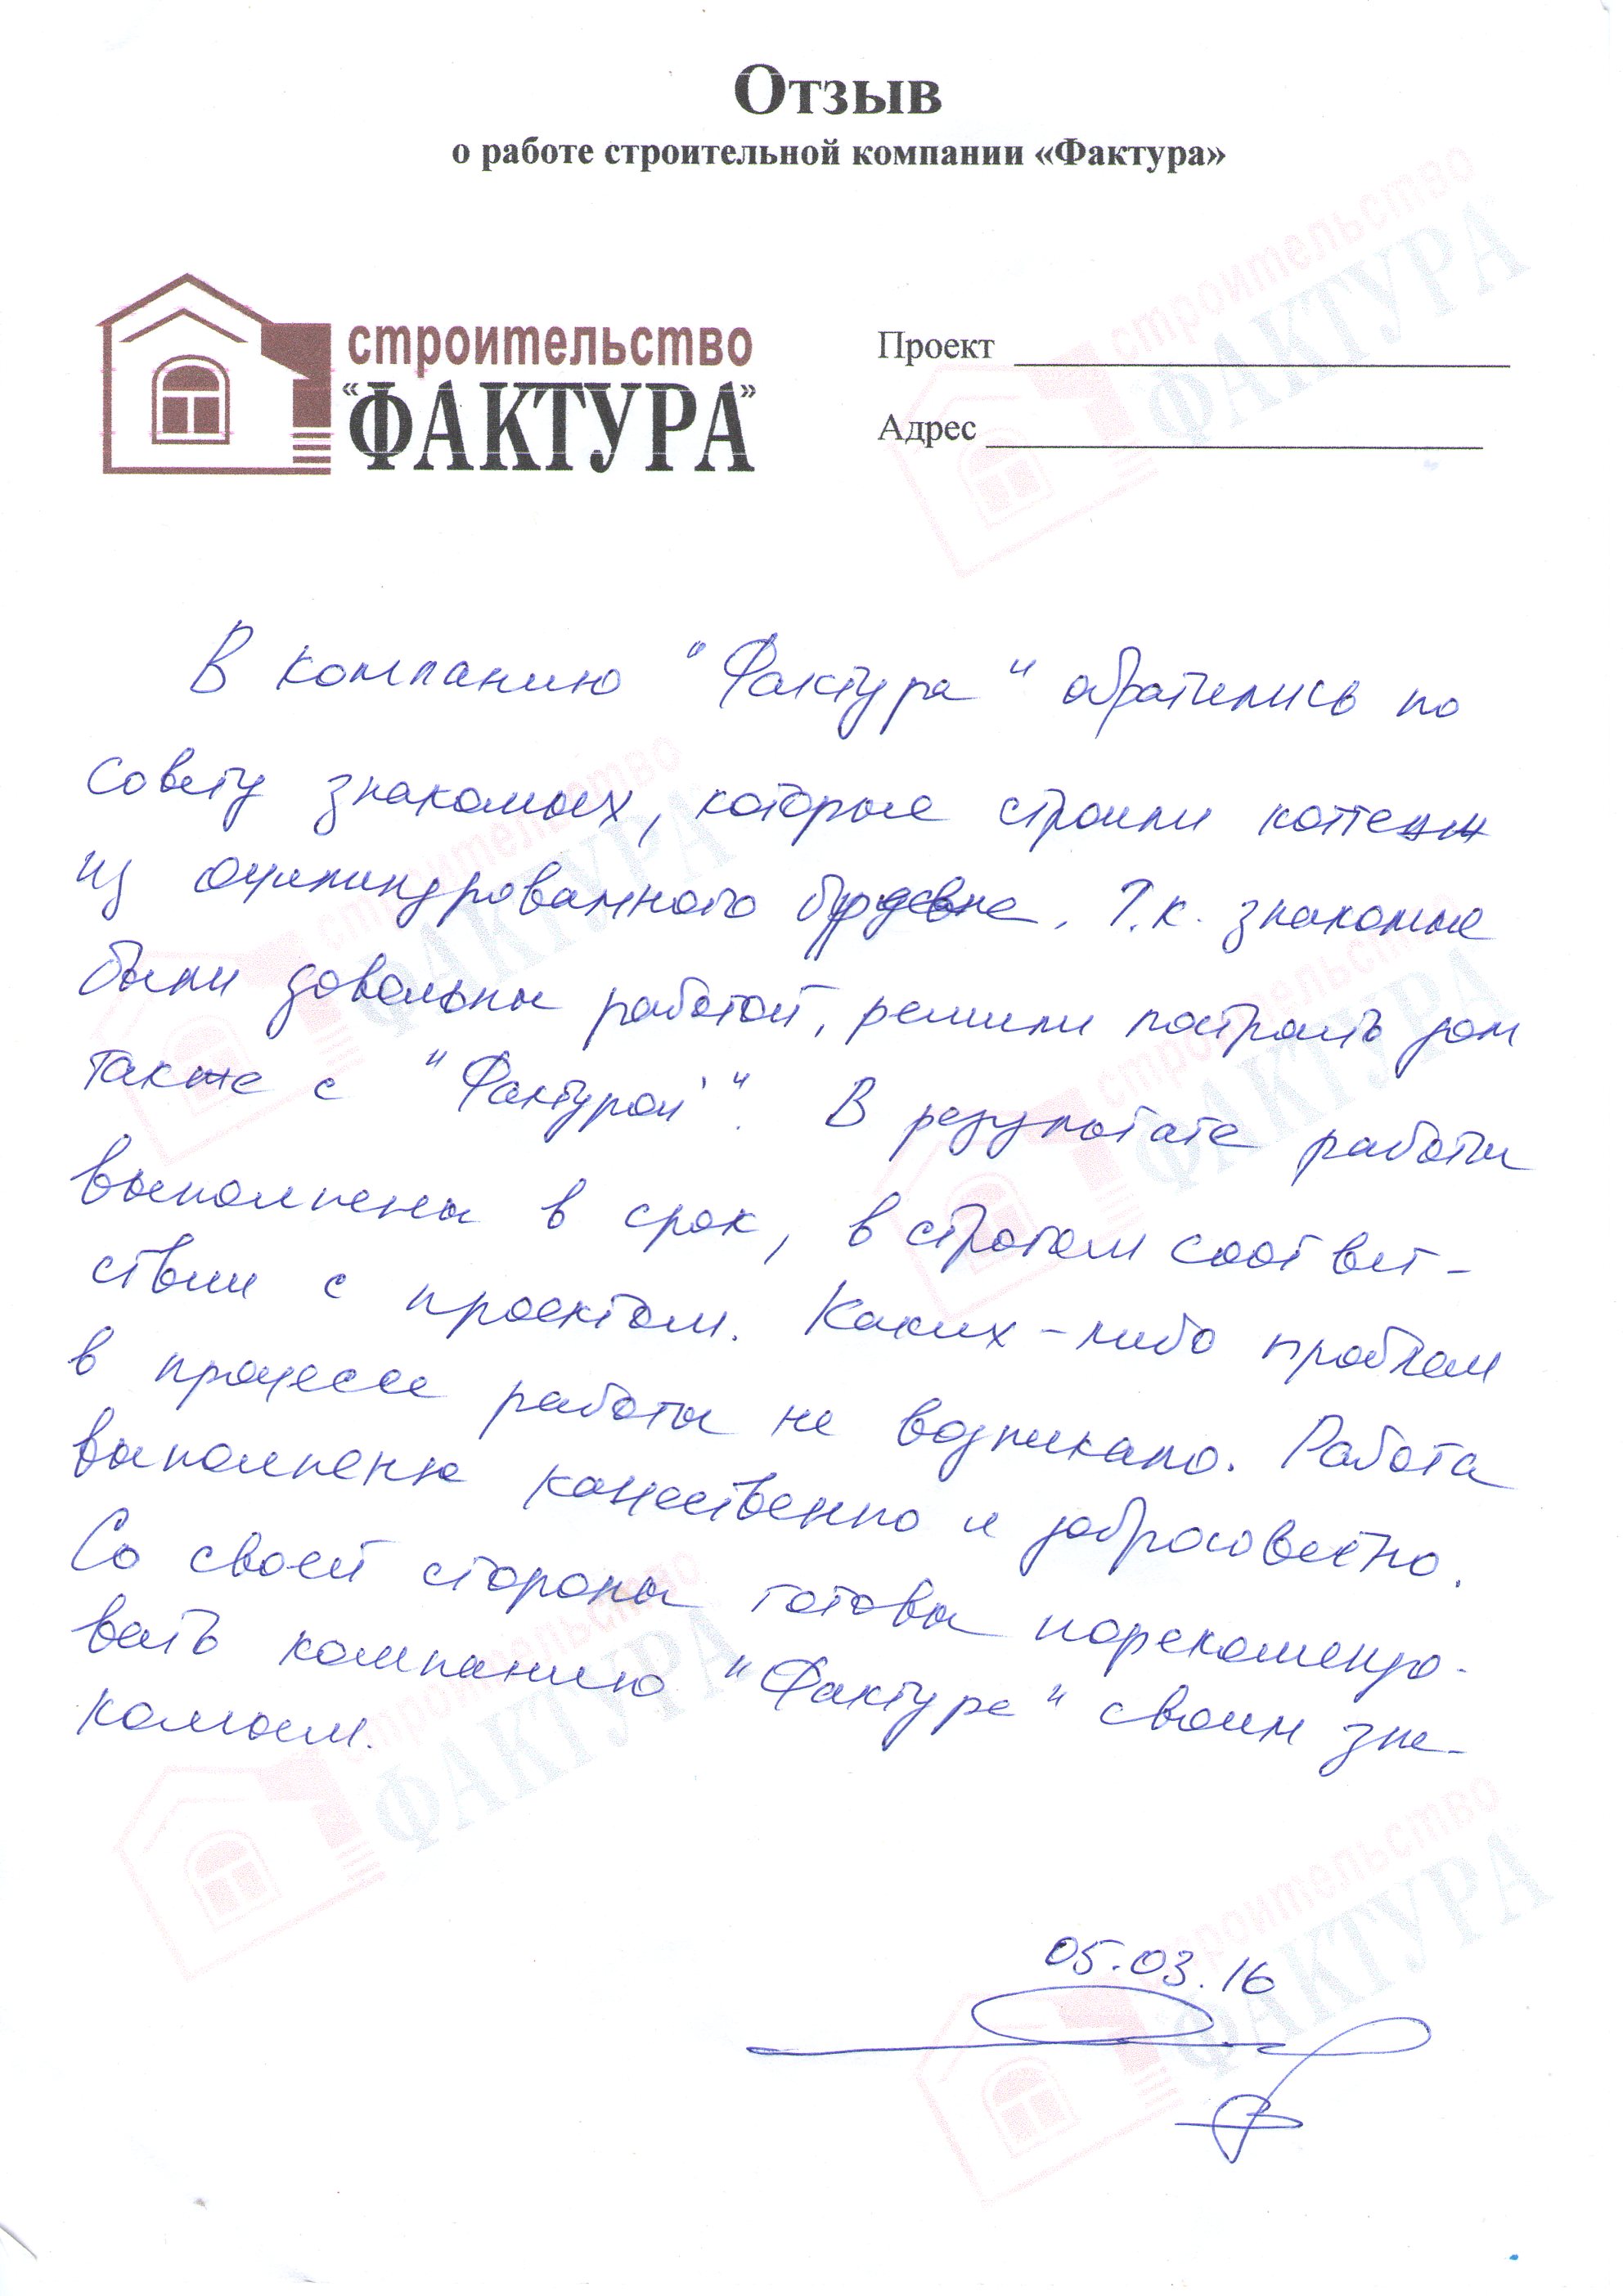 Отзыв
о работе строительной компании «Фактура»
строительство
"ФАКТУРА"
Проект
Адрес
В компанию "Фактура" обратились по
совету знакомых, которые строили
из оцилиндрованного бревна. Т.к. знакомые
были довольны работой, решили построить дом
также с "Фактурой". В результате работы
выполнены в срок, в строгом соответ-
ствии с проектом. Каких-либо проблем
в процессе работы не возникало. Работа
выполнена качественно и добросовестно.
Со своей стороны готовы порекомендо-
вать компанию "Фактура" своим зна-
комым.
05.03.16